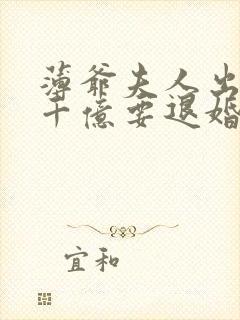 薄爷夫人出
十億要退婚
宜和